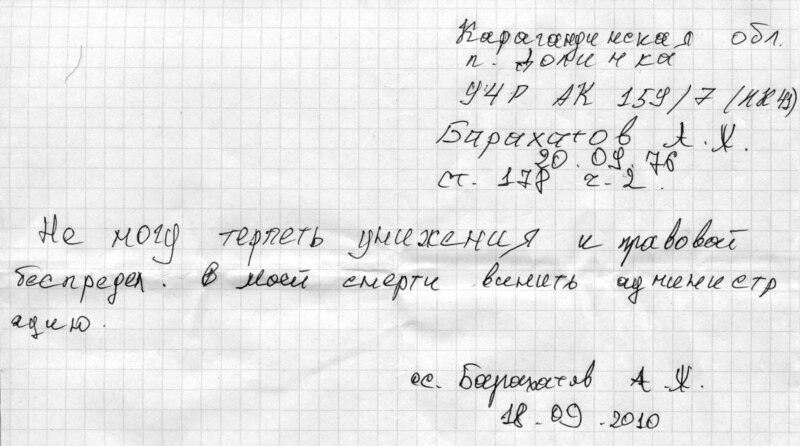 Карагандинская обл.
п. Долинка
УЧР АК 159/7 (ИК 49)
Барахатов А.Х.
20.09.76
ст. 178 ч. 2.
Не могу терпеть унижения и правовой
беспредел. В моей смерти винить администр
ацию.
ос. Барахатов А.Х.
18.09.2010